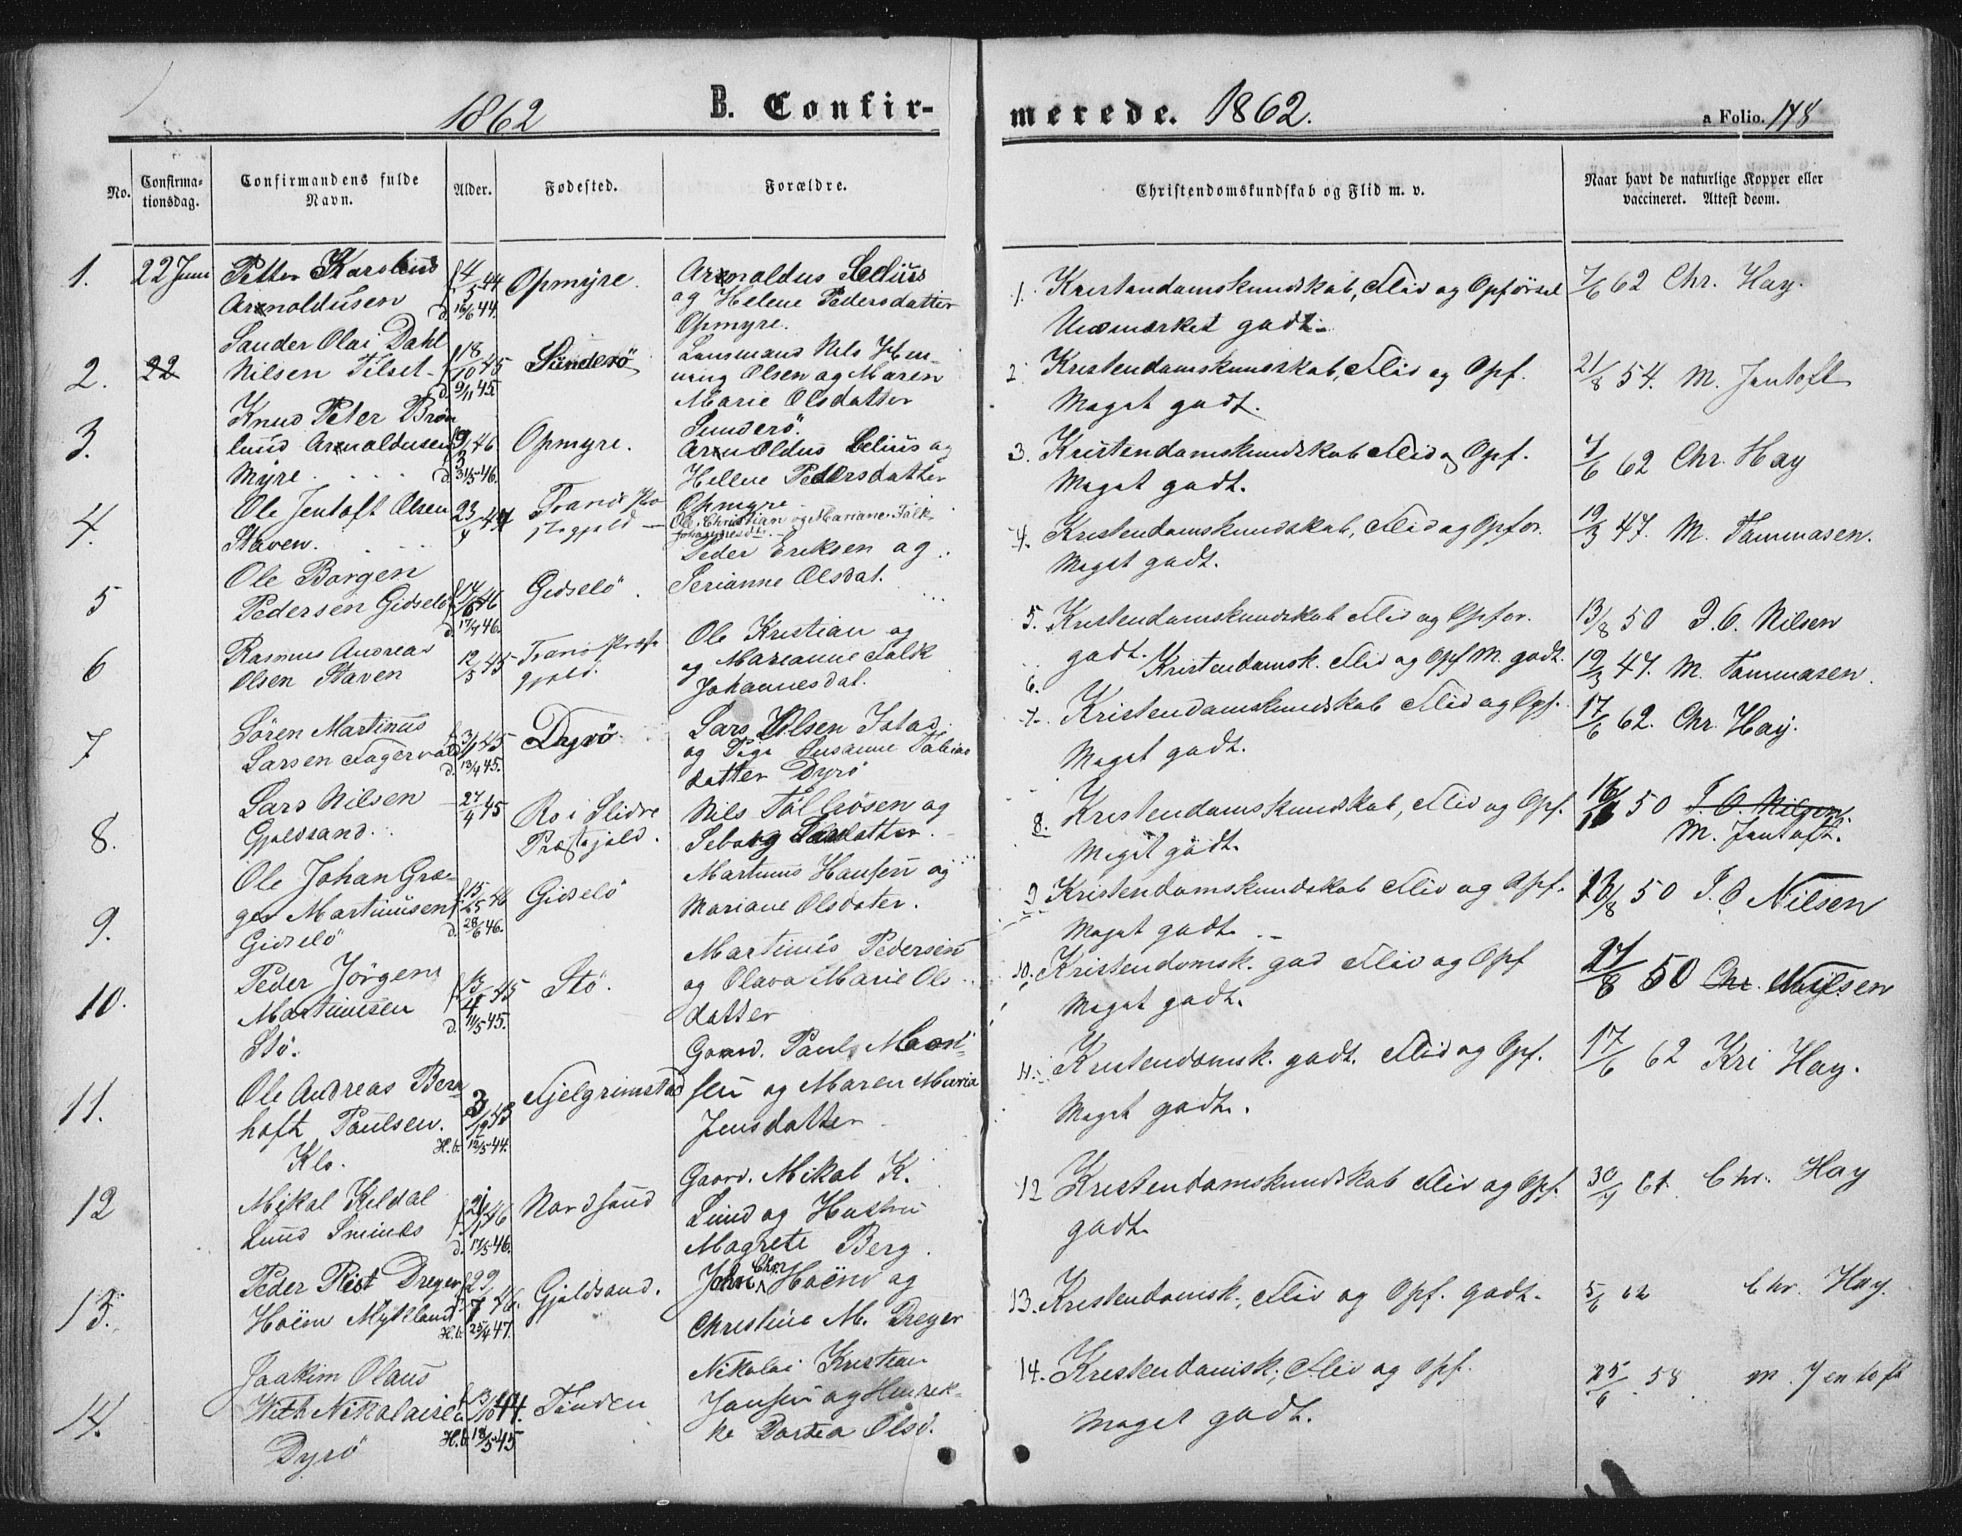 1862 B. Confir- merede. 1862. a Folio. 148
No. Confirma-tionsdag. Confirmandens fulde Navn. Alder. Fødested. Forældre. Christendomskundskab og Flid m. v. Naar havt de naturlige Kopper eller vaccineret. Attest deom.
1. 22 Juni Petter Karolius
Arnoldusen
f. 4/5 44
d. 16/6 44.
Opmyre.
Arnoldus Selius
og Helene Pedersdatter
Opmyre.
1. Kristendomskundskab, Flid og Opførsel
Udmærket godt.
7/6 62 Chr. Hay.
2. 22 Sander Olai Dahl
Nilsen Tilset
f 18/10 45
d. 9/11 45.
Sünderö
Lensmand Nils Hen-
ning Olsen og Maren
Marie Olsdatter
Sunderö.
2. Kristendomskundskab, Flid og Opf.
Meget godt.
21/8 54. M. Jentoft
3. Knud Peter Brön
lund Arnoldusen
Myre
9/3 46
d. 31/5 46.
Opmyre.
Arnoldus Selius og
Hellene Pedersdatter
Opmyre
3. Kristendomskundskab Flid og Opf.
Meget godt.
7/6 62 Chr. Hay
4. Ole Jentoft Olsen
Staven.
23/4 47
Tranö Præ
stegjeld
Ole Christian og Mariane Falk
Johannesdtr.
4. Kristendomskundskab, Flid og Opfør.
Meget godt.
19/3 47. M. Tommasen.
5 Ole Borgen
Pedersen Gidselö
d. 17/4 46.
Gidselö.
Peder Eriksen og
Serianne Olsdat.
5. Kristendomskundskab Flid og Opfør.
godt.
13/8 50 J. O. Nilsen
6 Rasmus Andreas
Olsen Staven
12/5 45
Tranö Præste
gjeld.
Ole Kristian og
og Marianne Falk
Johannesdat.
6. Kristendomsk. Flid og Opf M. godt.
19/3 47. M. Tommasen.
7 Sören Martinus
Larsen Fagervold
f. 3/1 45
d. 13/4 45.
Dyrö
Lars Olsen
og Pige Susanne Tobias
datter Dyrö
7. Kristendomskundskab Flid og Opf.
Meget godt.
17/6 62. Chr. Hay.
8. Lars Nilsen
Gjeldsand.
27/4 45
Ro i Slidre
Præstegjeld.
Nils Tolleösen og
Seborg Larsdatter.
8. Kristendomskundskab, Flid og Opf.
Meget godt.
50 J. O. Nilsen.
M. Jentoft.
9. Ole Johan Græ-
ger Martinusen
Gidselö
d. 28/6 46.
Gidselö
Martinus Hansen og
Mariane Olsdater.
9 Kristendomskundskab Flid og Opf.
Meget godt.
13/8 50 J. O Nilsen
10. Peder Jörgen
Martinusen
Stö.
d. 11/5 45.
Stö.
Martinus Pedersen
og Olava Marie Ols
datter
10. Kristendomsk. god Flid og Opf
Meget godt.
27/8 50 Chr. Nilsen
11. Ole Andreas Bern
hoft Paulsen.
Klo.
3/12 43
H.b. 12/5 44.
Fjelgrimstad
Gaard. Paul Mont-
sen og Maren Maria
Jensdatter
11. Kristendomsk. godt. Flid og Opf.
Meget godt.
17/6 62 Kri Hay.
12 Mikal Kildal
Lund Smines
f. 21/1 46
d. 17/5 46.
Nordsand
Gaard. Mikal K.
Lund og Hustru
Magrete Berg.
12 Kristendomskundskab Flid og Opf.
godt.
30/7 61. Chr. Hay
13. Peder Rist Dreyer
Hoem Mykland
f. 29/7 46.
H.b. 25/4 47.
Gjeldsand.
John Chr. Hoënd og
Christine M. Dreyer
13. Kristendomsk., Flid og Opf. godt.
5/6 62 Chr. Hay.
14. Joakim Olaus
With Nikolaisen
Dyrö
f. 13/10 44.
H.b. 18/5 45
Tünden
Nikolai Kristian
Jensen og Henrek-
ke Dortea Olsd.
14. Kristendomsk; Flid og Opf.
Meget godt.
25/6 58 M. Jentoft